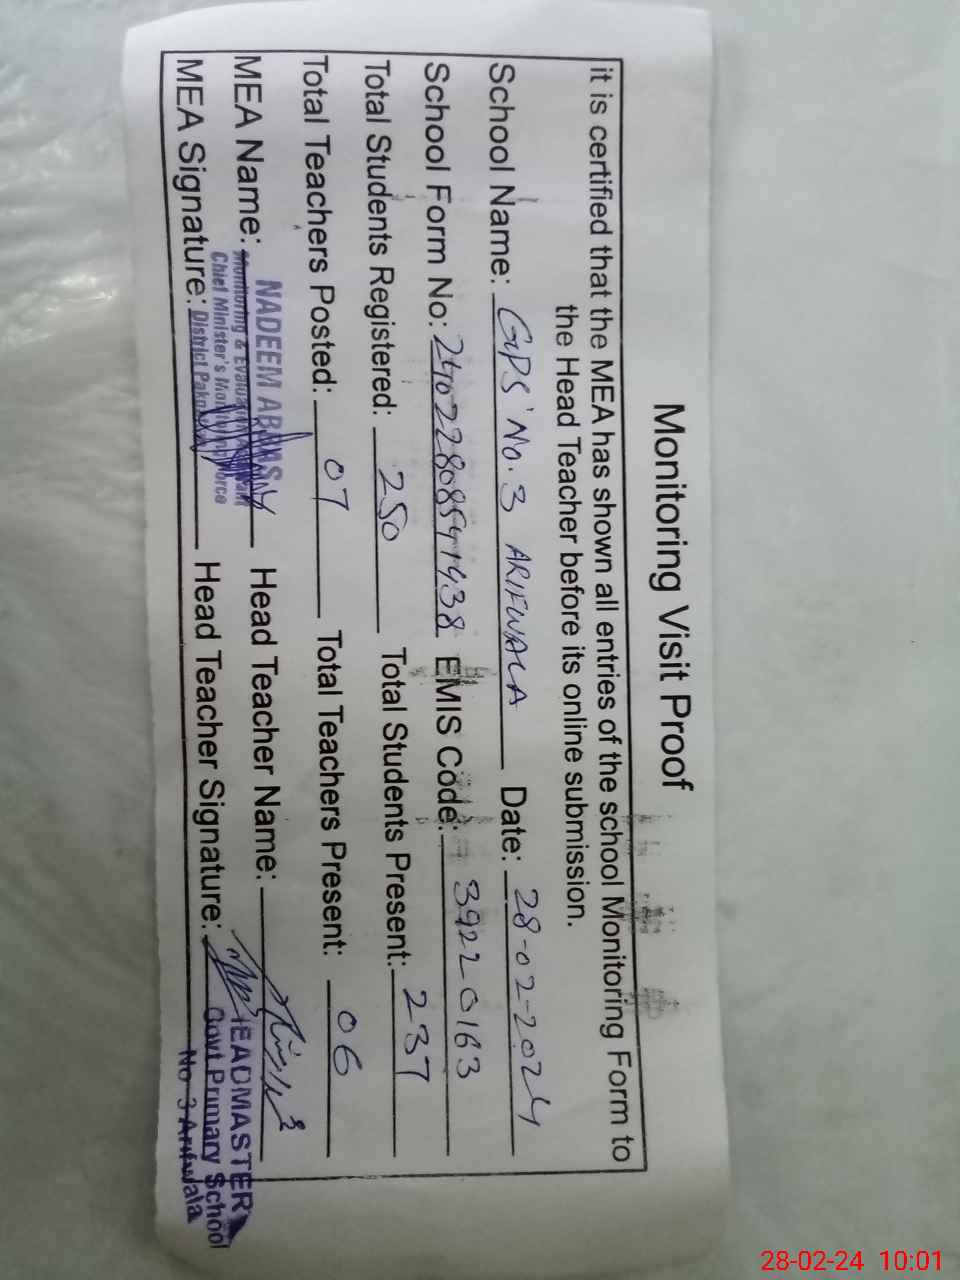 Monitoring Visit Proof
it is certified that the MEA has shown all entries of the school Monitoring Form to
the Head Teacher before its online submission.
School Name: GPS No. 3 ARIFWALA Date: 28-02-2024
School Form No: EMIS Code: 39220163
Total Students Registered: 250 Total Students Present: 237
Total Teachers Posted: 07 Total Teachers Present: 06
MEA Name: NADEEM ABBAS Head Teacher Name:
Monitoring & Evaluation Assistant
Chief Minister's Monitoring Force
MEA Signature: District Head Teacher Signature:
HEADMASTER
Govt Primary School
No 3 Arifwala
28-02-24 10:01